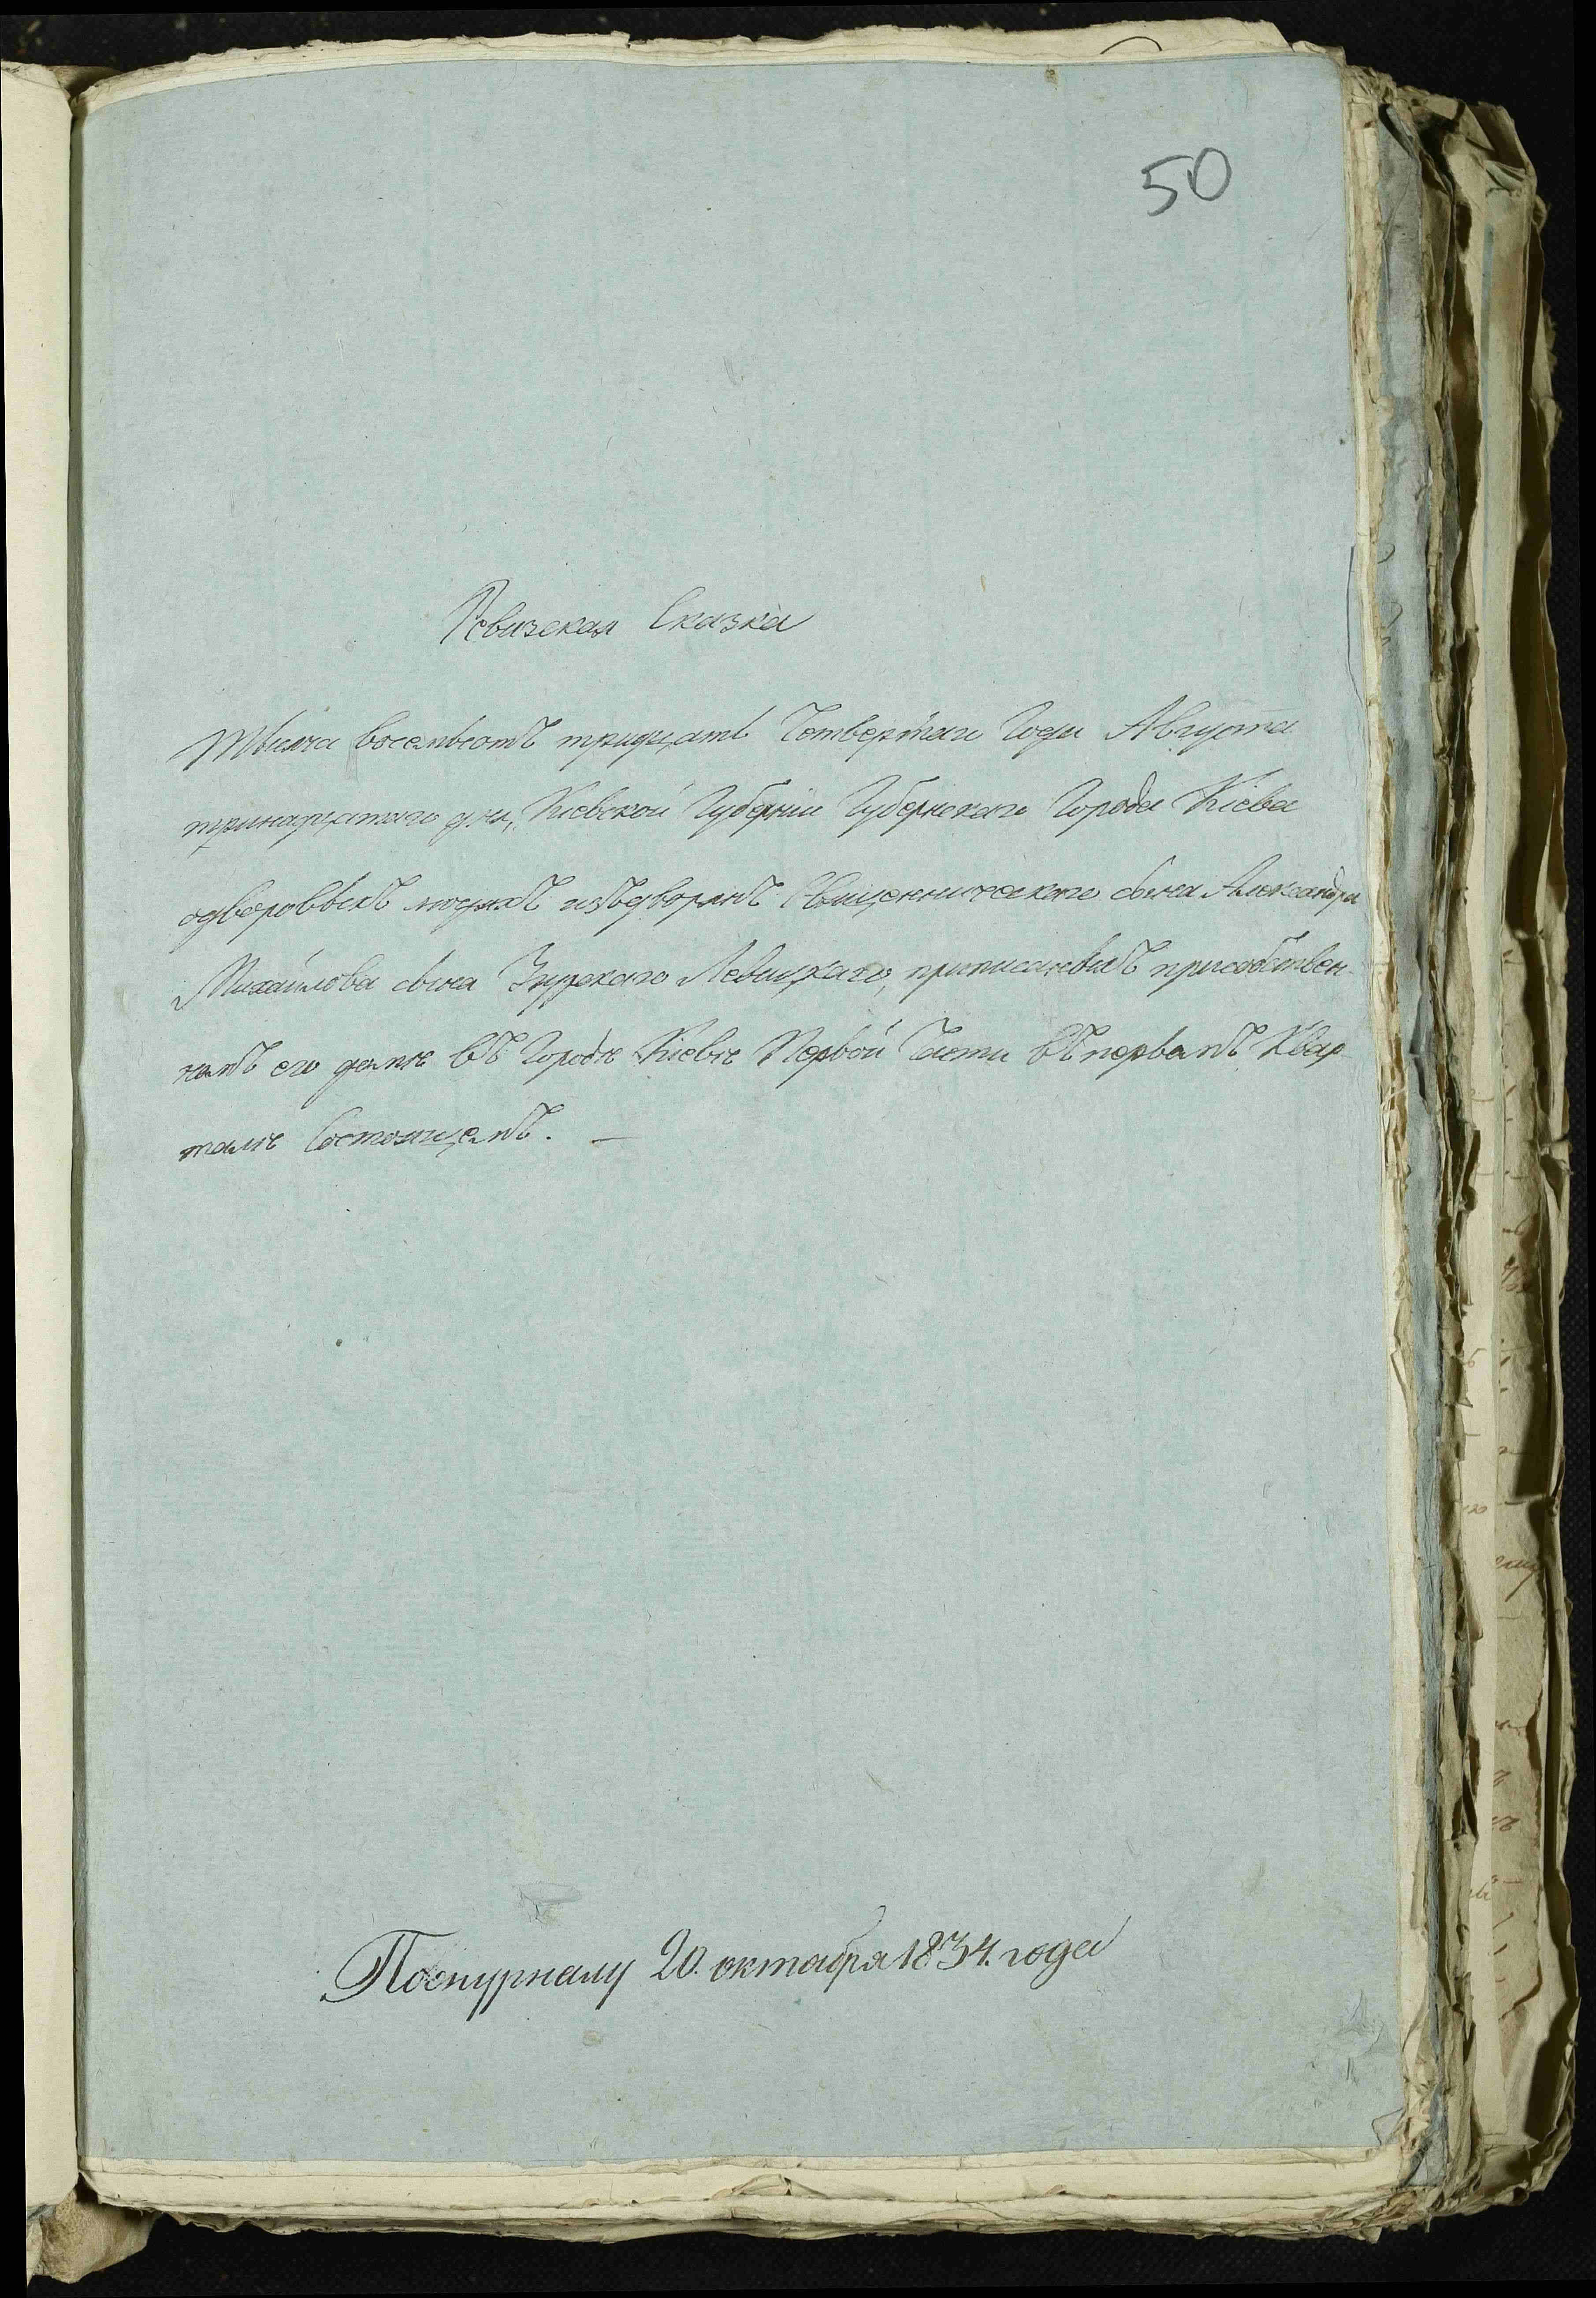 50
Ревизская Сказка
Тысяча восемьсотъ тридцать Четвертаго Года Августа
тринадцатаго дня, Кіевской Губерніи Губернскаго Города Кіева
одворовыхъ людяхъ изъдворянъ Священническаго сына Александра
Михайлова сына Левицкаго, приписаныхъ присобствен-
номъ его домѣ въ Городѣ Кіевѣ Первой Части въ первомъ Квар
талѣ Состоящемъ. —
Пожурналу 20. октября 1834. года